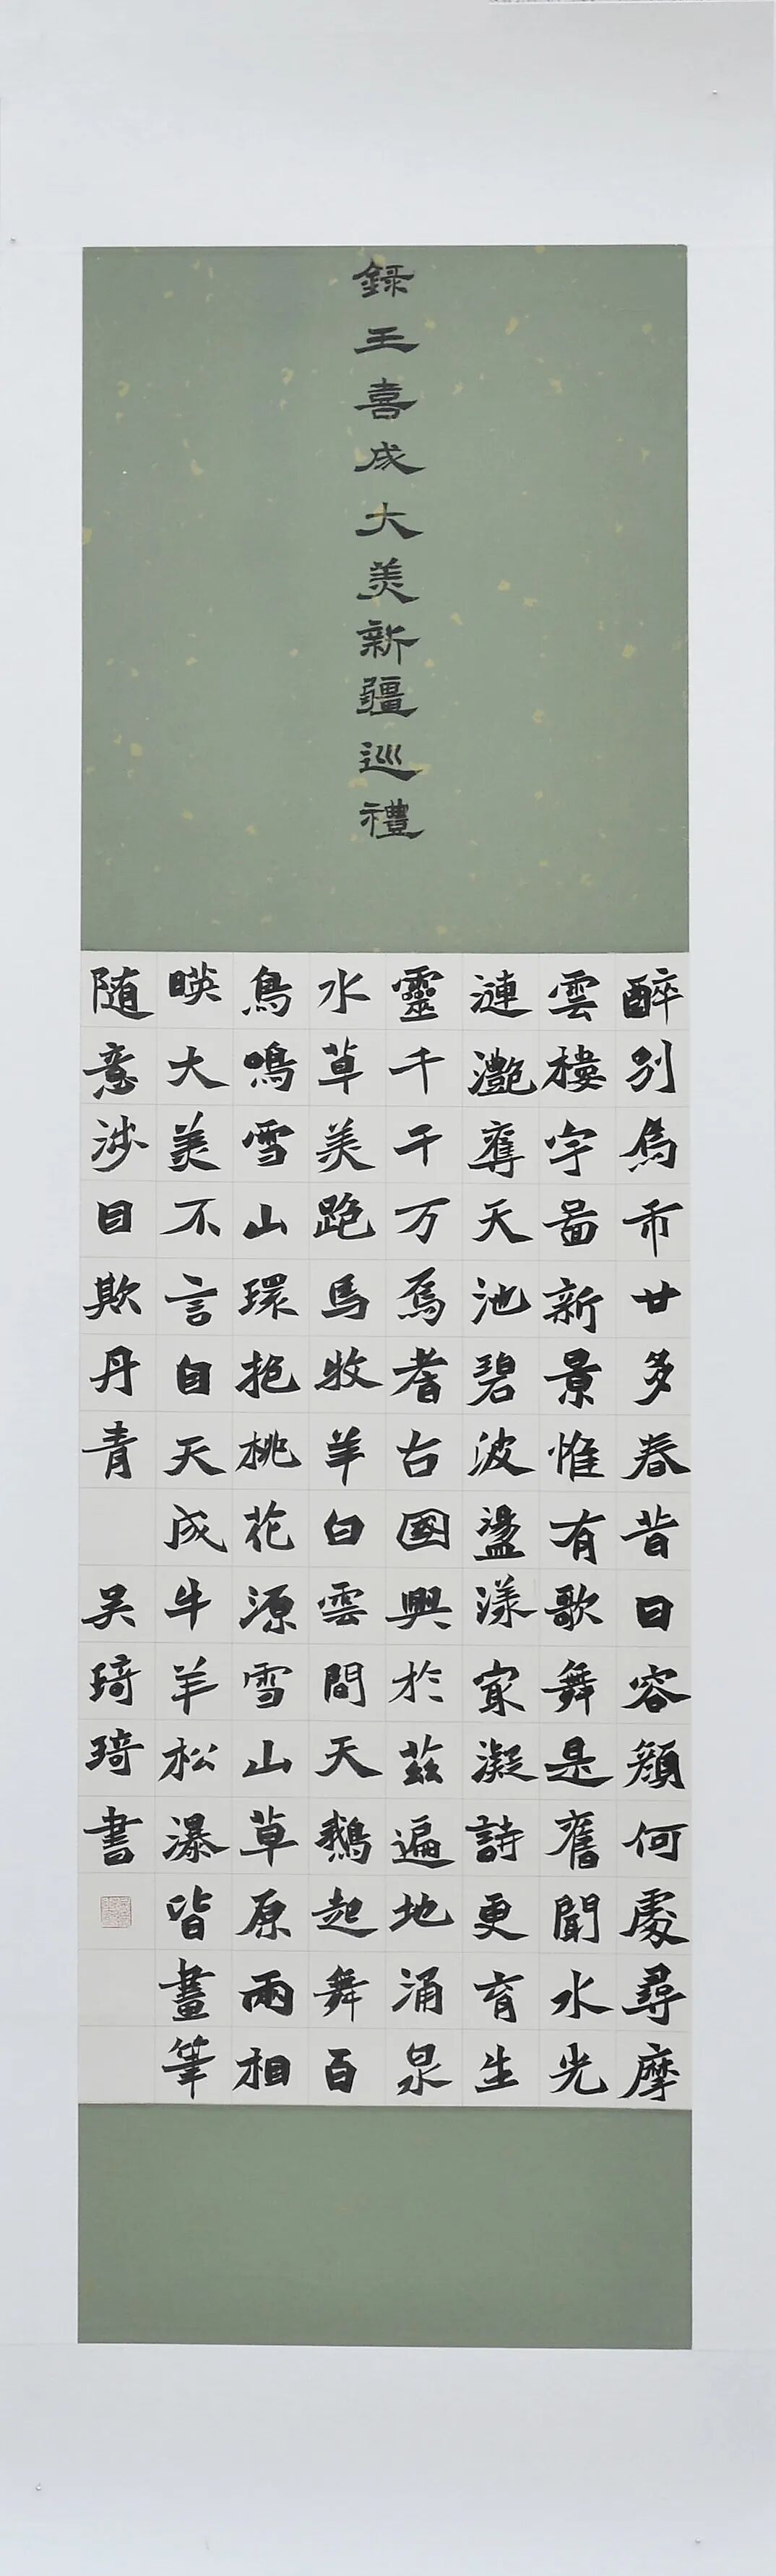 錄王喜成大美新疆巡禮
醉別烏市廿多春昔日容顏何處尋摩
雲樓宇啚新景惟有歌舞是舊聞水光
漣灩奪天池碧波盪漾凝詩更育生
靈千千万焉耆古國興於茲遍地涌泉
水草美跑馬牧羊白雲間天鵝起舞百
鳥鳴雪山環抱桃花源雪山草原兩相
暎大美不言自天成牛羊松瀑皆畫筆
随意涉目欺丹青 吴琦琦書